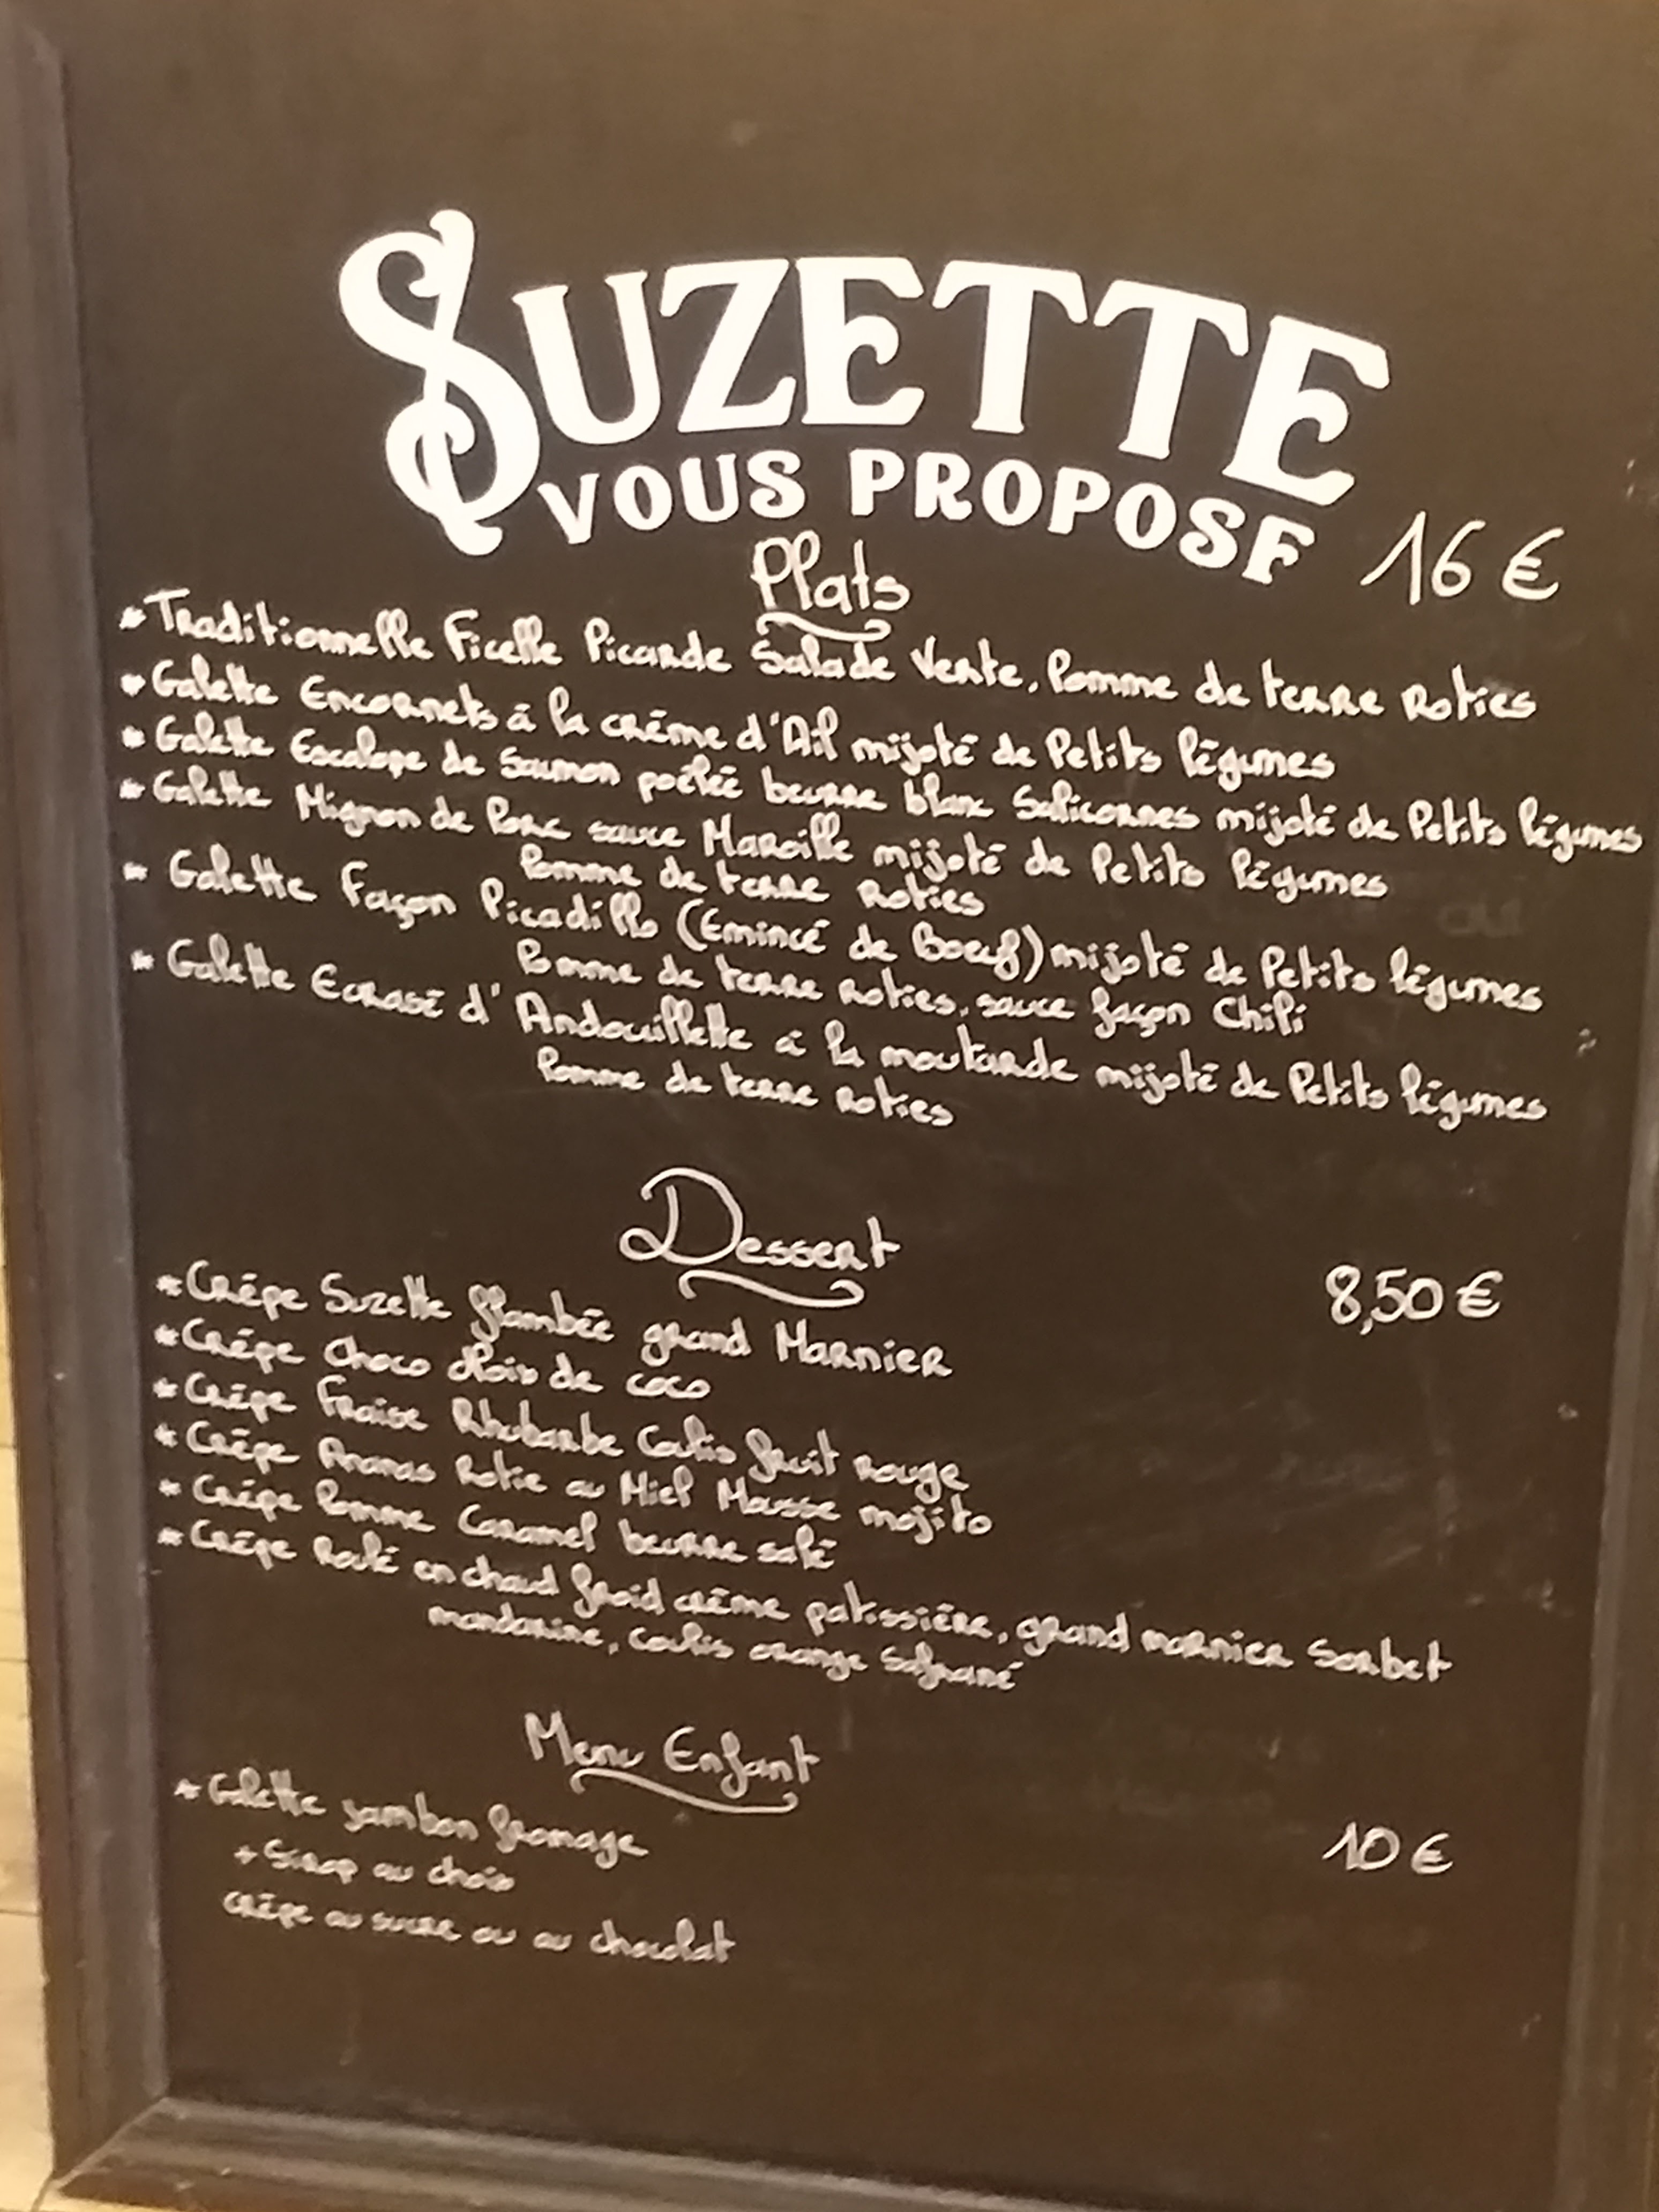 SUZETTE
VOUS PROPOSE
Plats 16 €
* Traditionnelle Ficelle Picarde Salade Verte, Pomme de terre Roties
* Galette Encornets à la crème d'Ail mijoté de Petits légumes
* Galette Escalope de Saumon poêlée beurre blanc Salicornes mijoté de Petits légumes
* Galette Mignon de Porc sauce Maroille mijoté de Petits légumes
Pomme de terre Roties
* Galette Façon Picadillo (Emincé de Boeuf) mijoté de Petits légumes
Pomme de terre Roties, sauce façon Chili
* Galette Ecrasé d'Andouillette à la moutarde mijoté de Petits légumes
Pomme de terre Roties
Dessert 8,50 €
* Crêpe Suzette flambée grand Marnier
* Crêpe Choco Noix de coco
* Crêpe Fraise Rhubarbe Coulis fruit rouge
* Crêpe Ananas Rotie au Miel Mousse mojito
* Crêpe Pomme Caramel beurre salé
* Crêpe Roulé en chaud froid crème patissière, grand marnier Sorbet
mandarine, coulis orange Safrané
Menu Enfant
* Galette jambon fromage 10 €
+ Sirop au choix
Crêpe au sucre ou au chocolat